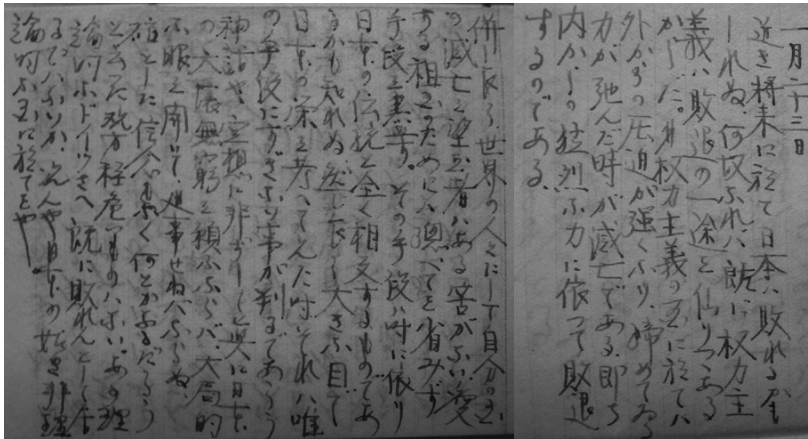 一月二十三日
近き将来に於て日本ハ敗れるかも
しれぬ、何故なれバ既に権力主
義ハ敗退の一途を辿りつゝある
からだ。権力主義の国に於てハ
外からの圧迫が強くなり、締めてゐる
力が弛んだ時が滅亡である、即ち
内からの猛烈な力に依って敗退
するのである
併しながら世界の人々にして自分の国
の滅亡を望む者ハある筈がない、愛
する祖国のためにハ總べてを省みず
手段を異らす。その手段ハ時に依り
日本の伝統と全く相反するものであ
るかも知れぬ、然しながら大きな目で
日本の栄を考へてみた時それハ唯
の手段にすぎない事が判るであらう
神話や空想に非ずして真に日本
の天壌無窮を願ふならバ、大局的
な眼を開いて、せねバならぬ
確とした信念もなく何とかなるだらう
と云った考方程危いものハない。あの理
論的なドイツさへ既に敗れんとして居
るでハないか、况んや日本の如き非理
論的な国に於てをや。